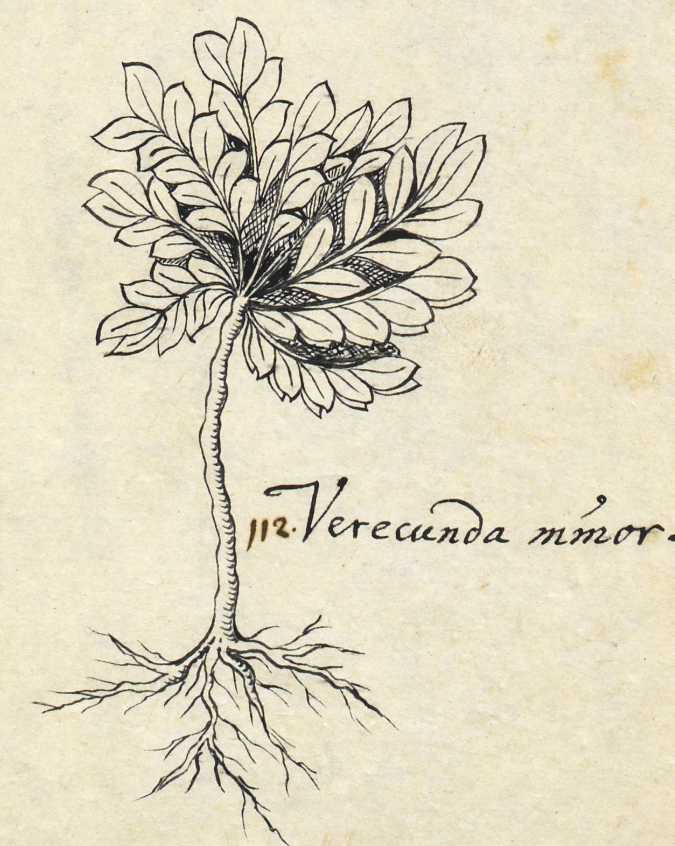 112. Verecunda minor.